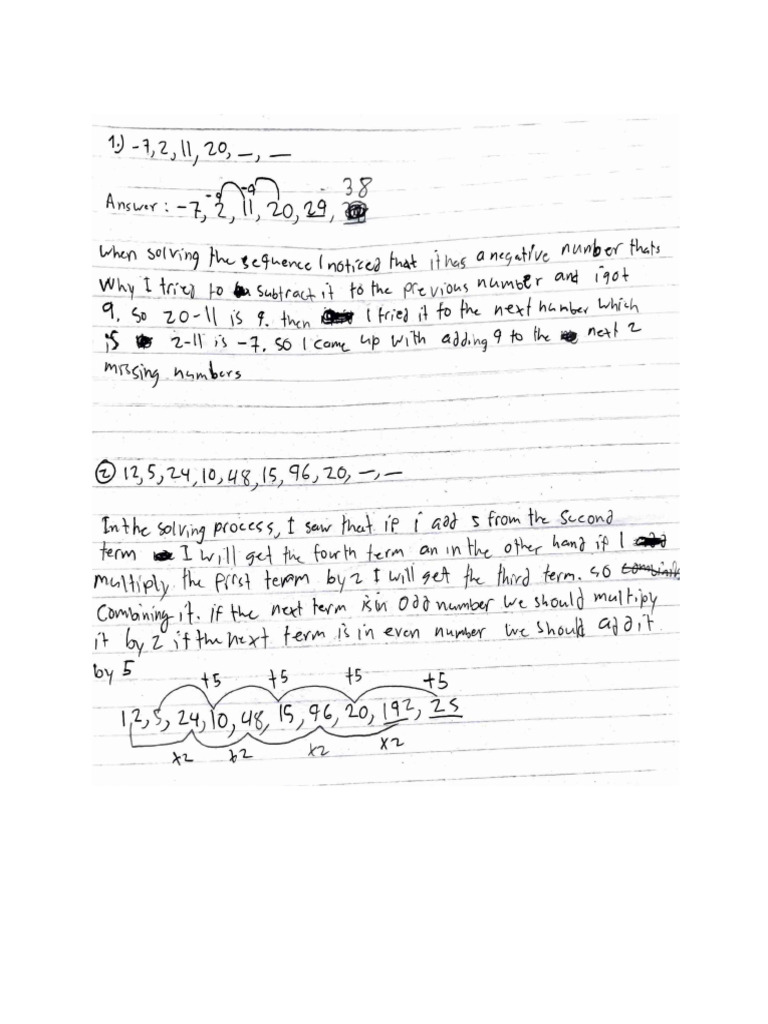 1.) -7, 2, 11, 20, _, _
38
-9 -9
Answer: -7, 2, 11, 20, 29,
When solving the sequence I noticed that it has a negative number thats
Why I tried to subtract it to the previous number and i got
9. so 20-11 is 9. then I tried it to the next number which
is 2-11 is -7. so I came up with adding 9 to the next 2
missing numbers
② 12, 5, 24, 10, 48, 15, 96, 20, _, _
In the solving process, I saw that if i add 5 from the second
term I will get the fourth term an in the other hand if I
multiply the first term by 2 I will get the third term. so
Combining it. if the next term is in odd number we should multipy
it by 2 if the next term is in even number we should add it
by 5
+5 +5 +5 +5
12, 5, 24, 10, 48, 15, 96, 20, 192, 25
x2 x2 x2 x2